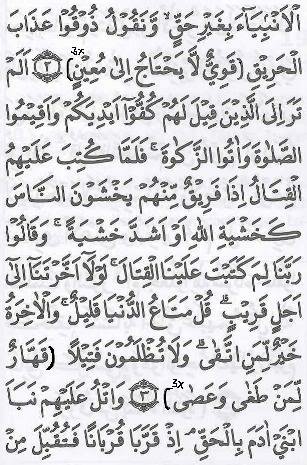 الْاَنْۢبِيَآءَ بِغَيْرِ حَقٍّ ۙ وَّنَقُوْلُ ذُوْقُوْا عَذَابَ
الْحَرِيْقِ (قَوِيٌّ لَّا يَحْتَاجُ اِلٰى مُعِيْنٍ) 3x ﴿٢﴾ اَلَمْ
تَرَ اِلَى الَّذِيْنَ قِيْلَ لَهُمْ كُفُّوْٓا اَيْدِيَكُمْ وَاَقِيْمُوا
الصَّلٰوةَ وَاٰتُوا الزَّكٰوةَ ۚ فَلَمَّا كُتِبَ عَلَيْهِمُ
الْقِتَالُ اِذَا فَرِيْقٌ مِّنْهُمْ يَخْشَوْنَ النَّاسَ
كَخَشْيَةِ اللّٰهِ اَوْ اَشَدَّ خَشْيَةً ۚ وَقَالُوْا
رَبَّنَا لِمَ كَتَبْتَ عَلَيْنَا الْقِتَالَ ۚ لَوْلَآ اَخَّرْتَنَآ اِلٰٓى
اَجَلٍ قَرِيْبٍ ۗ قُلْ مَتَاعُ الدُّنْيَا قَلِيْلٌ ۚ وَالْاٰخِرَةُ
خَيْرٌ لِّمَنِ اتَّقٰى ۗ وَلَا تُظْلَمُوْنَ فَتِيْلًا (قَهَّارٌ
لِمَنْ طَغٰى وَعَصٰى) 3x ﴿٣﴾ وَاتْلُ عَلَيْهِمْ نَبَاَ
ابْنَيْ اٰدَمَ بِالْحَقِّ ۘ اِذْ قَرَّبَا قُرْبَانًا فَتُقُبِّلَ مِنْ